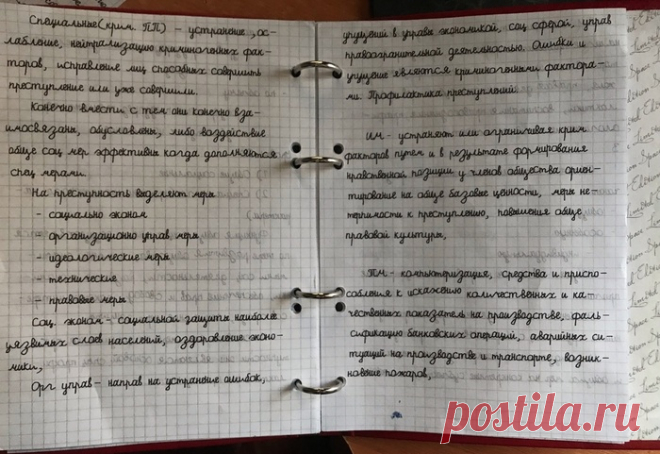 Специальные(крим. ПП) - устранение, ос-
лабление, нейтрализацию криминогенных фак-
торов, исправление лиц способных совершить
преступление или уже совершили.
Конечно вместе с тем они конечно вза-
имосвязаны, обусловлены, либо воздействие
обще соц мер эффективны когда дополняются
спец мерами.
На преступность выделяют меры
- социально эконом
- организационно управ меры
- идеологические меры
- технические
- правовые меры
Соц. эконом - социальной защиты наиболее
уязвимых слоб населений, оздоровление эконо-
мики,
Орг управ - направ на устранение ошибок,
упущений в управ экономикой, соц сферой, управ
правоохранительной деятельностью. Ошибки и
упущение является криминогенными фактора-
ми. Профилактика преступлений
ИМ - устраняют или ограничивая крим
факторов путем и в результате формирования
нравственной позиции у членов общества ориен-
тирование на обще базовые ценности, меры не-
терпимости к преступлению, повышения обще
правовой культуры,
ТМ - компьютеризация, средства и приспо-
собления к искажению количественных и ка-
чественных показатель на производстве, фаль-
сификацию банковских операций, аварийных си-
туаций на производстве и транспорте, возник-
новение пожаров,
postila.ru